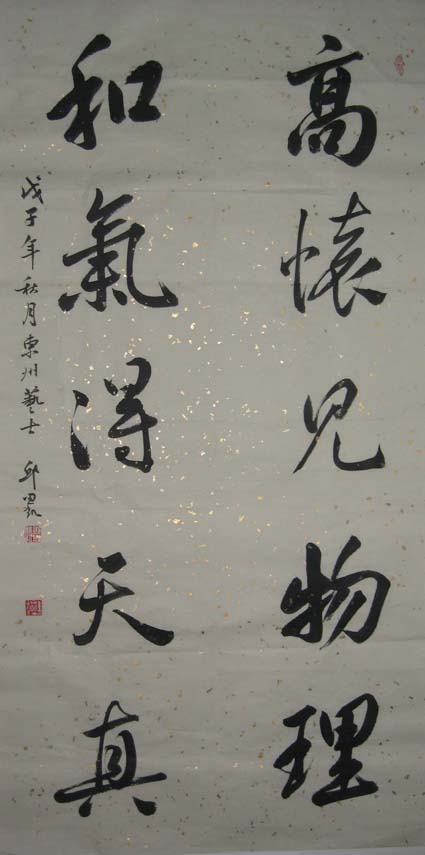 高懷見物理
和氣得天真
戊子年秋月東州藝士 邱